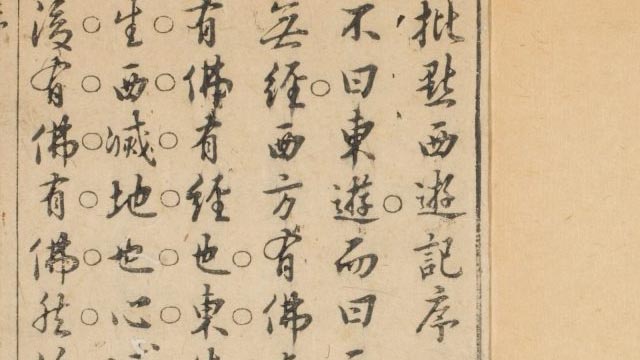 批點西遊記序
不曰東遊而曰
無經西方有佛
有佛有經也東
生西滅地也心
後有佛有佛然